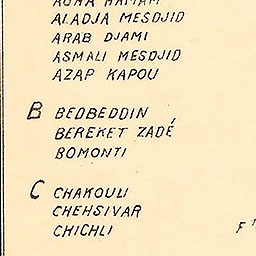 ALADJA MESDJID
ARAB DJAMI
ASMALI MESDJID
AZAP KAPOU
B BEDBEDDIN
BEREKET ZADÉ
BOMONTI
C CHAKOULI
CHEHSIVAR
CHICHLI
F